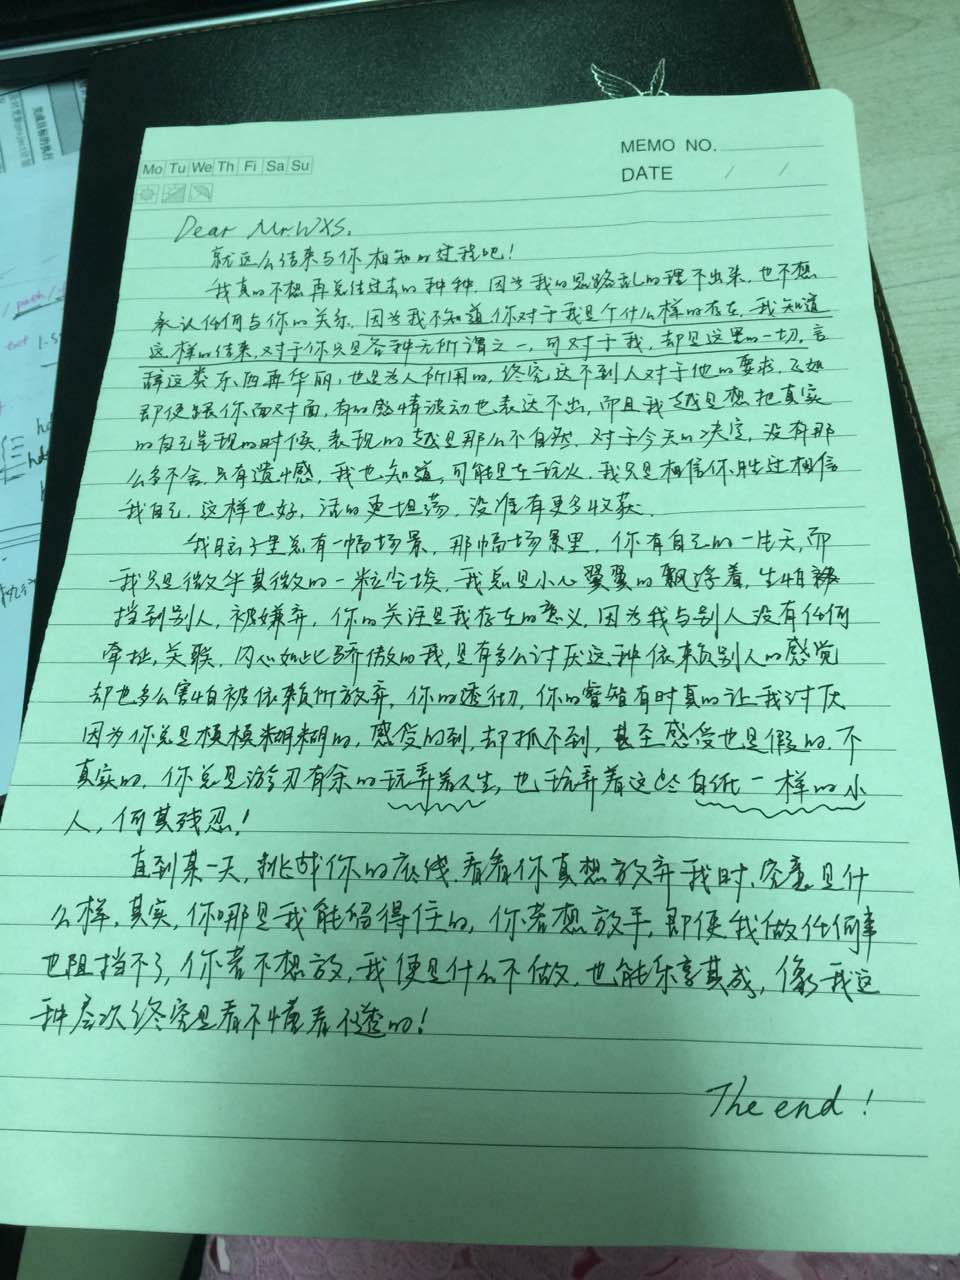 完成目标的执行
MEMO NO.
Mo Tu We Th Fi Sa Su
DATE / /
Dear Mr.WXS.
就这么结束与你相知的过程吧！
我真的不想再总结过去的种种，因为我的思路乱的理不出来，也不想
承认任何与你的关系，因为我不知道你对于我是个什么样的存在，我知道
这样的结束，对于你只是各种无所谓之一，可对于我，却是这里的一切。言
辞这类东西再华丽，也是为人所用的，终究达不到人对于他的要求，正如
即便跟你面对面，有的感情波动也表达不出，而且我越是想把真实
的自己呈现的时候，表现的越是那么不自然，对于今天的决定，没有那
么多不舍，只有遗憾，我也知道，可能是在玩火，我只是相信你，胜过相信
我自己，这样也好，活的更坦荡，没准有更多收获。
我脑子里总有一幅场景，那幅场景里，你有自己的一片天，而
我只是微乎其微的一粒尘埃，我总是小心翼翼的飘浮着，生怕
挡到别人，被嫌弃，你的关注是我存在的意义，因为我与别人没有任何
牵扯，关联，内心如此骄傲的我，是有多么讨厌这种依赖别人的感觉
却也多么害怕被依赖所放弃，你的透彻，你的睿智有时真的让我讨厌
因为你总是模模糊糊的，感受的到，却抓不到，甚至感受也是假的，不
真实的，你总是游刃有余的玩弄着人生，也玩弄着这些自低一样的小
人，何其残忍！
直到某一天，挑战你的底线，看看你真想放弃我时，究竟是什
么样，其实，你哪是我能留得住的，你若想放手，即便我做任何事
也阻挡不了，你若不想放，我便是什么不做，也能乐享其成，像我这
种层次终究是看不懂看不透的！
The end！